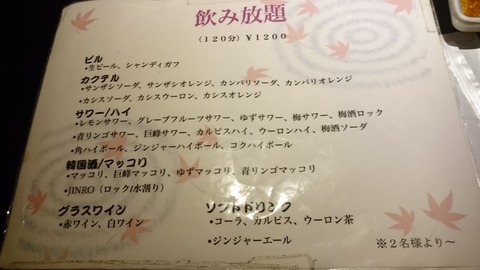 飲み放題
(120分) ¥1200
ビル
・生ビール、シャンディガフ
カクテル
・サンザシソーダ、サンザシオレンジ、カンパリソーダ、カンパリオレンジ
・カシスソーダ、カシスウーロン、カシスオレンジ
サワー/ハイ
・レモンサワー、グレープフルーツサワー、ゆずサワー、梅サワー、梅酒ロック
・青リンゴサワー、巨峰サワー、カルピスハイ、ウーロンハイ、梅酒ソーダ
・角ハイボール、ジンジャーハイボール、コクハイボール
韓国酒/マッコリ
・マッコリ、巨峰マッコリ、ゆずマッコリ、青リンゴマッコリ
・JINRO（ロック/水割り）
グラスワイン
・赤ワイン、白ワイン
ソフトドリンク
・コーラ、カルピス、ウーロン茶
・ジンジャーエール
※２名様より～